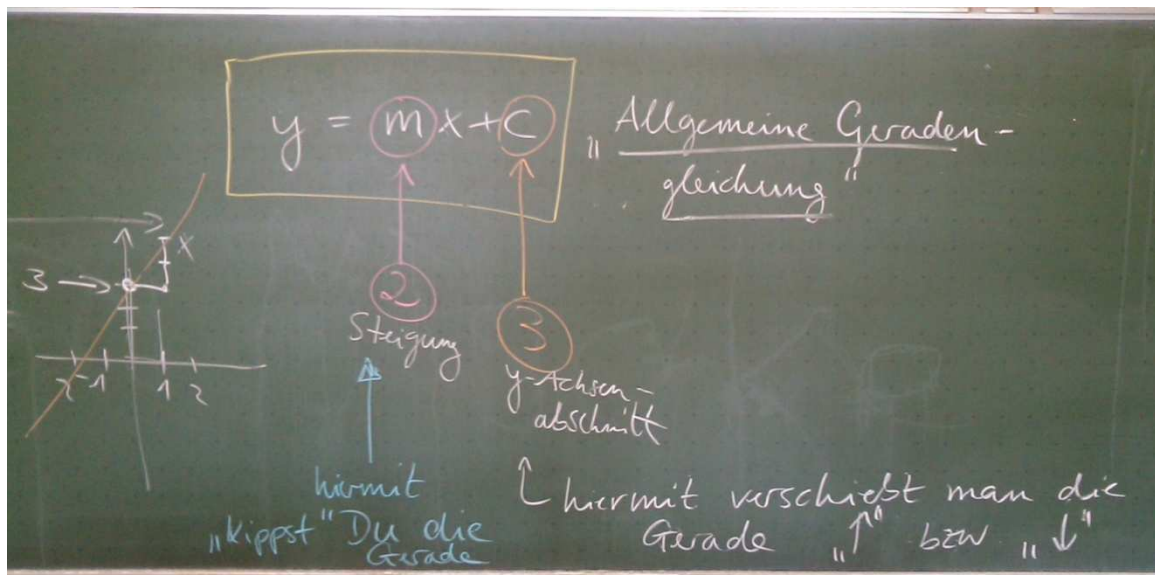 y = mx+c
„Allgemeine Geraden-
gleichung"
x
3
2 -1 1 2
2
Steigung
3
y-Achsen-
abschnitt
hiermit
„kippst" Du die
Gerade
hiermit verschiebt man die
Gerade „↑" bzw „↓"